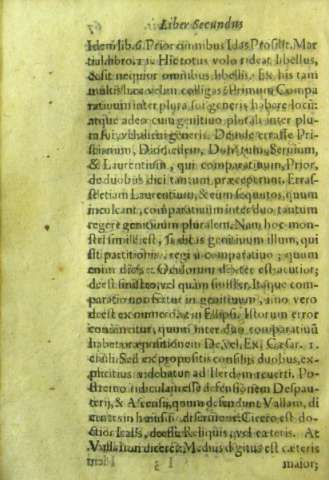 Liber Secundus 67
Idem lib. 6. Prior omnibus Idas Prosilit. Mar
tial. libro. 2. Hic totus volo rideat libellus,
& sit nequior omnibus libellis. Ex his tam
multis licet velim colligas: Primum Compa
rativum inter plura sui generis habere locũ:
atque adeo cum genitivo plurali inter plu-
ra sui, vel alieni generis. Deinde errasse Pri-
scianum, Diomedem, Donatum, Servium,
& Laurentium, qui comparativum, Prior,
de duobus dici tantum præceperunt. Erras-
se etiam Laurentium, & eum sequutos, quum
inculcant, comparativum inter duo tantum
regere genitivum pluralem. Nam hoc mon-
stri simile est, si ditas genitivum illum, qui
sit partitionis, regi à comparativo; quum
enim dicis: Oculorum dexter est acutior;
deest sinistro, vel quàm sinister. Itaque com-
paratio non fit in genitivum, sino vero
deest ex numero, ut in Ellipsi. Istorum error
convincitur, quum inter duo comparativũ
habet præpositionem De, vel, Ex, Cæsar. 1.
civili: Sed ex propositis consiliis duobus, ex-
plicitius videbatur ad Ilerdam reverti. Po-
stremo ridicula est defensio nem Despau-
terij, & Ascensij, quum defendunt Vallam, di
centes in huiusmodi sermone: Cicero est do-
ctior Icasis, deesse Reliquis, vel cæteris. At
Valla non diceret: Medius digitus est cæteris
I 3 maior;